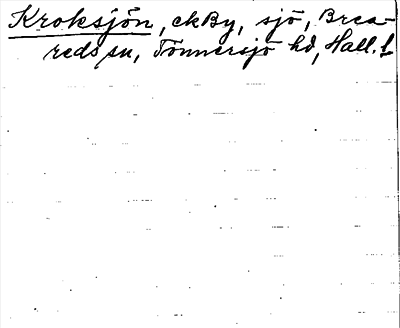 Kroksjön, ekBy, sjö, Brea-
reds sn, Tönnersjö hd, Hall. l.